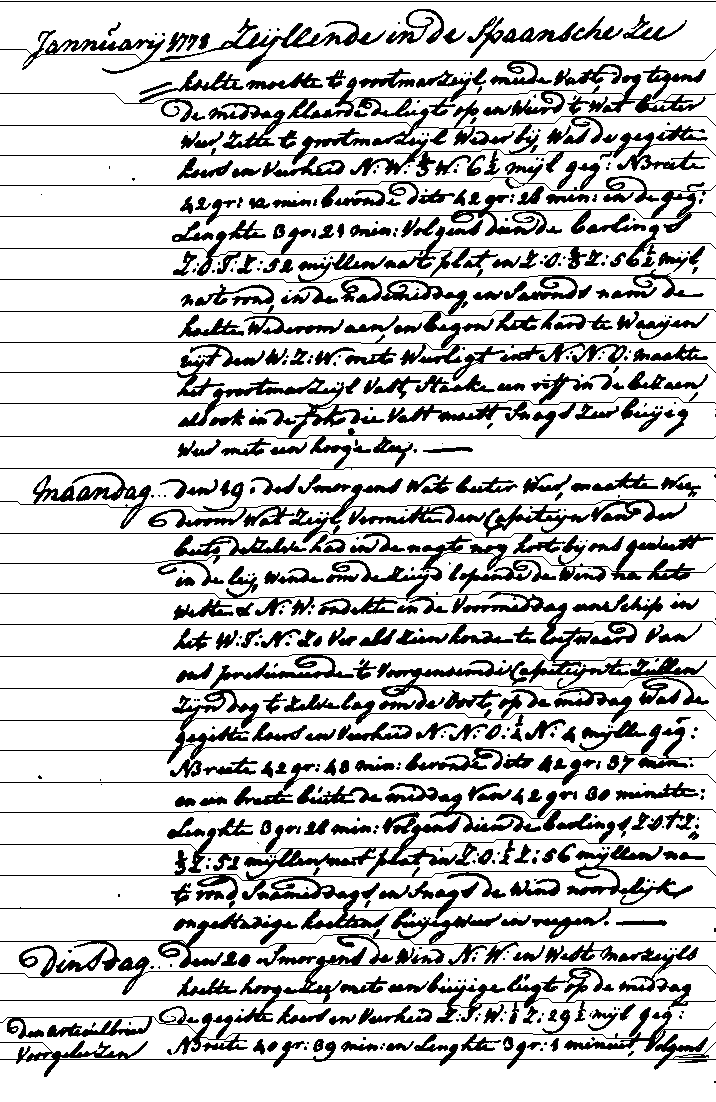 Jannuarij 1778 Zeijllende in de Spaansche Zee
koelte moeste 't grootmarzeijl, meede vast, dog tegens
de middag klaarde de lugt op, en wierd 't wat beeter
weer, zette 't grootmarzeijl weder bij, was de gegiste
koers en verheid N: W: ½ W: 6½ mijl geg: NBreete
42 gr: 12 min: bevonde dito 42 gr: 28 min: en de geg:
Lenghte 3 gr: 21 min: Volgens dien de barlings
Z: O: T: Z: 52 mijllen na 't plat, en Z: O: ½ Z: 56½ mijl,
na 't rond, in de nademiddag, en savonds nam de
koelte wederom aan, en begon het hard te waaijen
uijt den W: Z: W: mets weerligt int N: N: O: maakte
het grootmarzeijl vast, staake een riff in de bezaen,
als ook in de fok die vast moest, snags zeer buijig
weer mets een hooge zee.
Maandag.. den 19. des smorgens wat beeter weer, maakte we-
derom wat zeijl, vermitte den Capiteijn van der
beets, dezelve had in de nagt nog kort bij ons geweest
in de leij, wende om de zuijd lopende de wind na het
weste & N: W: ondekte in de voormeddag een schip in
het W: T: N: zo ver als zien konde te loefwaard van
ons presumeerde 't voorgenoemde Capiteijn te zullen
zijn dog 't zelve lag om de oost, op de middag was de
gegiste koers en verheid N: N: O: ¼ N: 4 mijlle geg:
NBreete 42 gr: 43 min: bevonde dito 42 gr: 37 min:
en een breete buite de middag van 42 gr: 30 minutte:
Lenghte 3 gr: 28 min: Volgens dien de barlings, Z: O: T: Z:
½ Z: 51 mijllen, na 't plat, en Z: O: ½ Z: 56 mijllen na
't rond, snamiddags, en snags de wind noordelijk
ongestadige koeltens, buijig weer en reegen.
Dinsdag.. den 20. Smorgens de wind N: W: en West marzeijls
koelte hooge zee, mets een buijige lugt op de middag
de gegiste koers en verheid Z: T: W: ½ Z: 29½ mijl geg:
Den articulbrief
voorgeleezen
NBreete 40 gr: 39 min: en Lenghte 3 gr: 1 minuut, Volgens